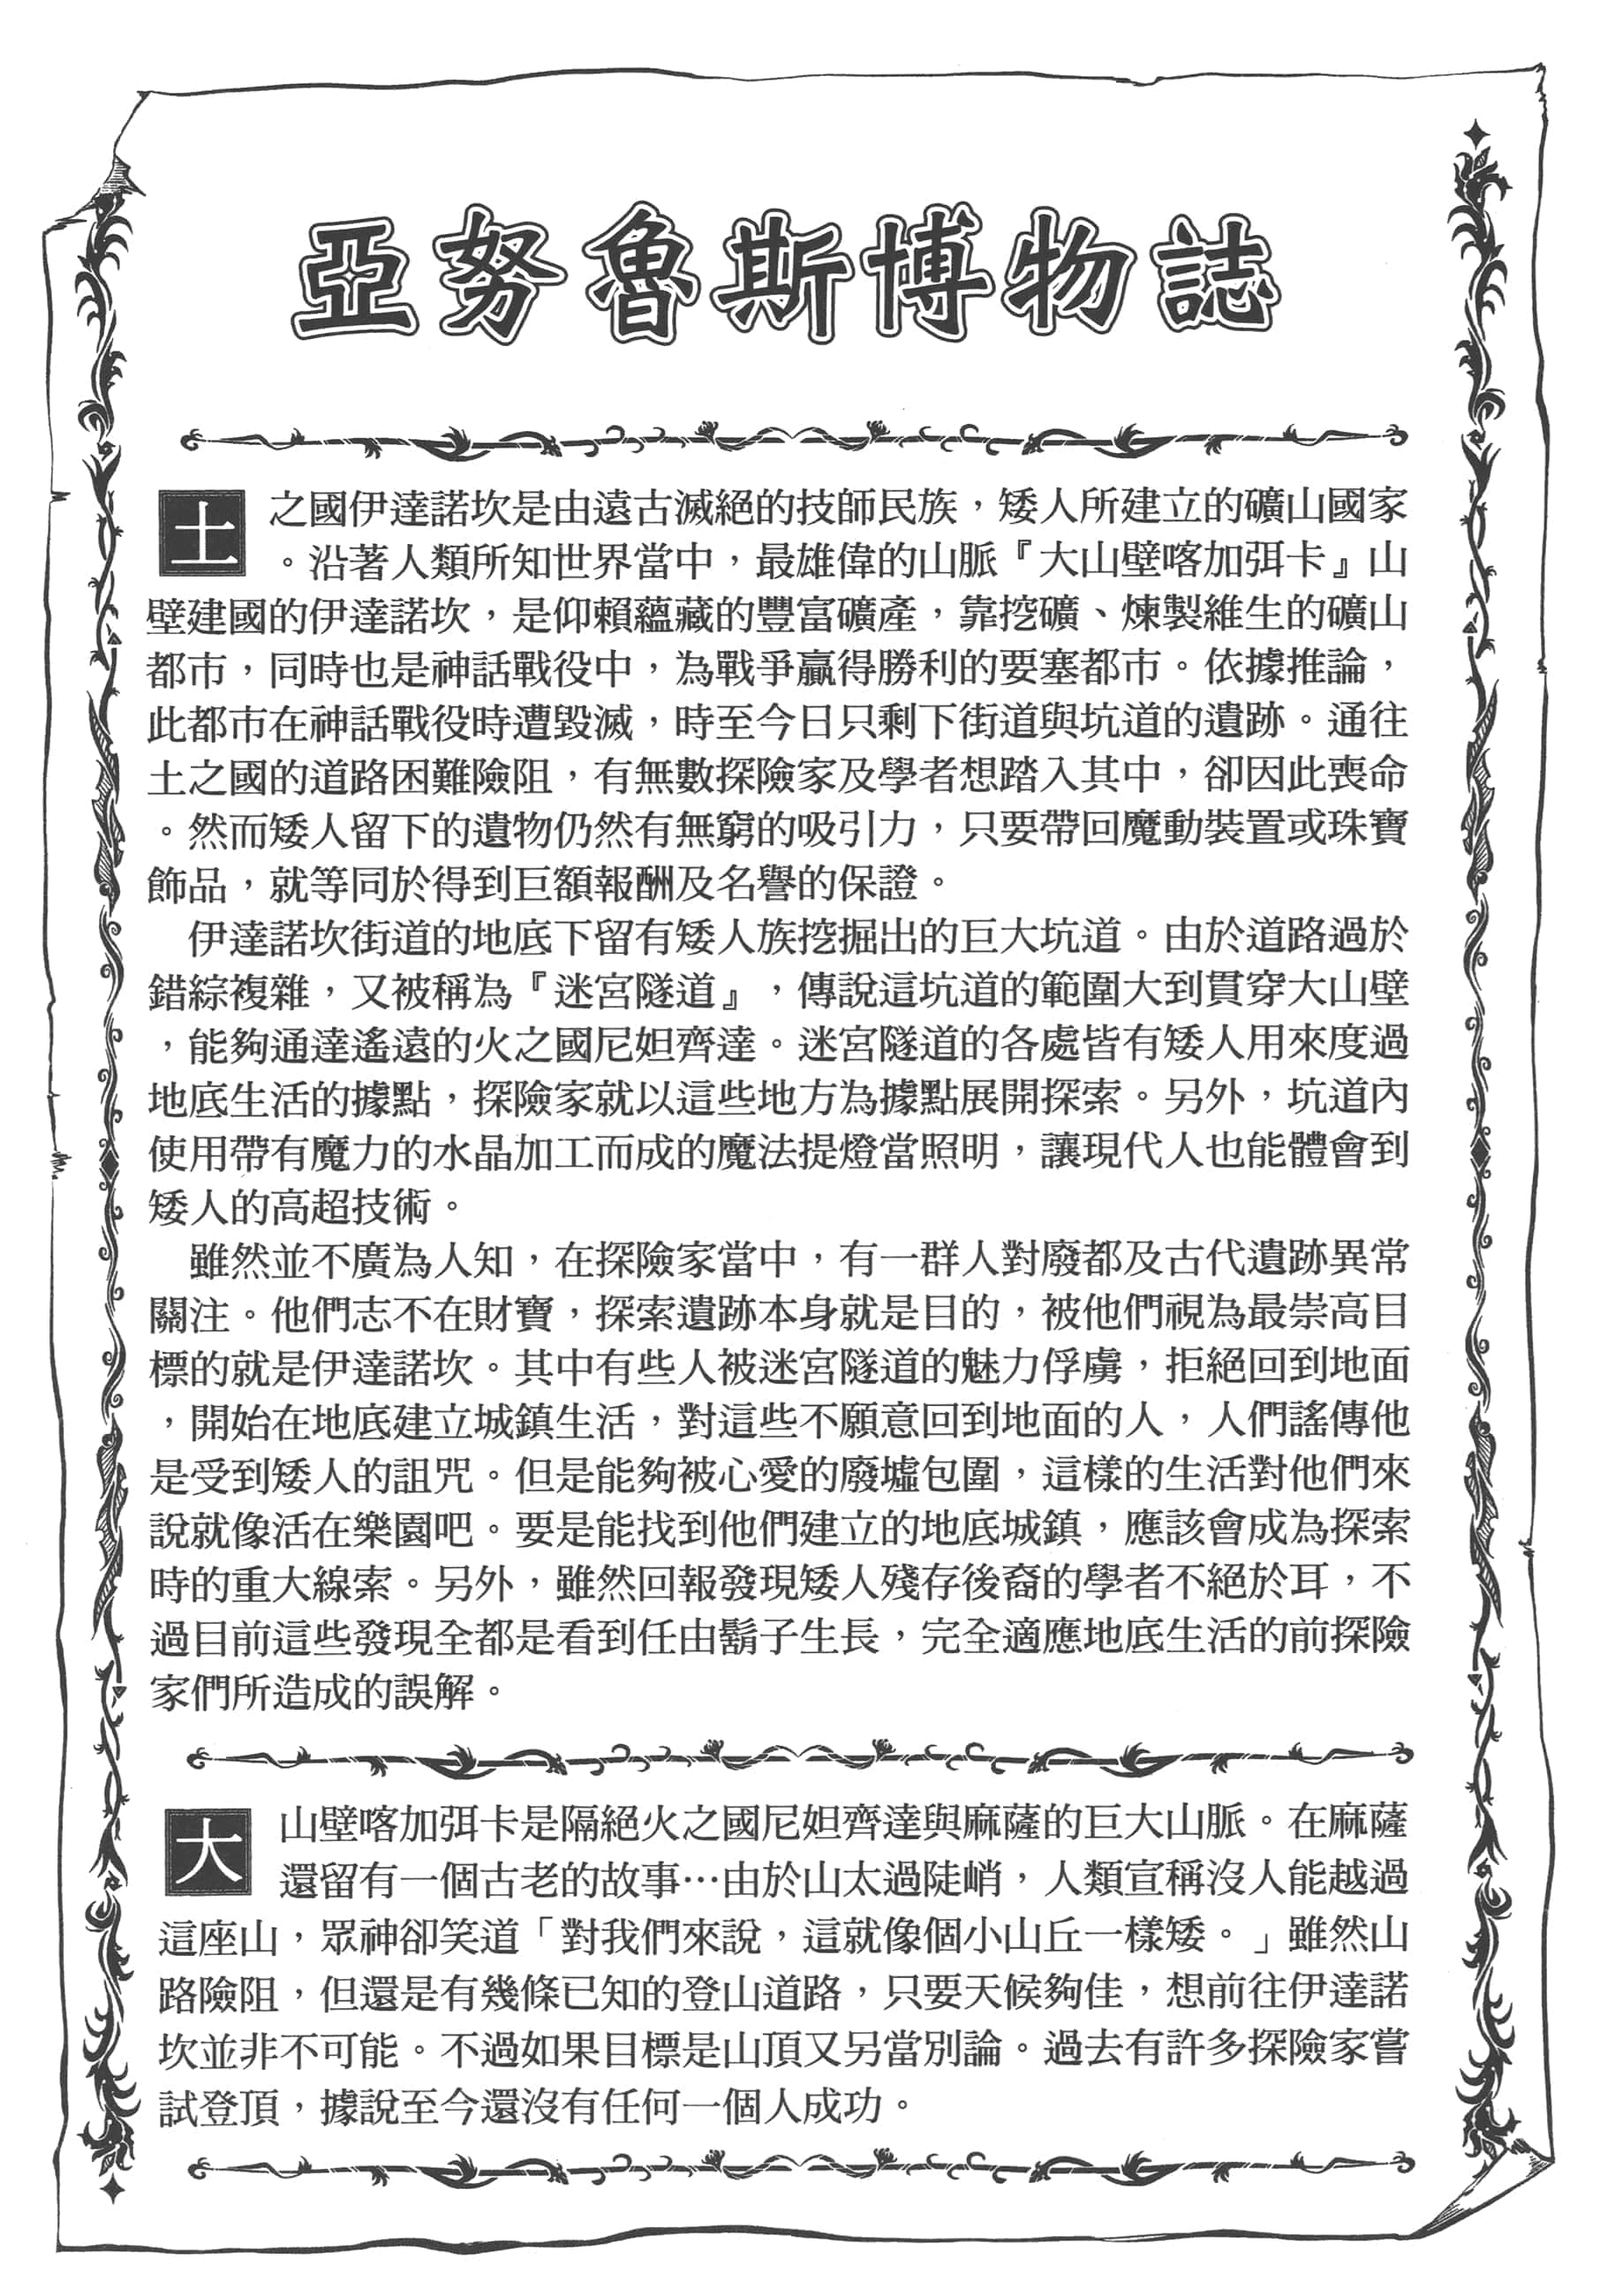 亞努魯斯博物誌
土之國伊達諾坎是由遠古滅絕的技師民族，矮人所建立的礦山國家
。沿著人類所知世界當中，最雄偉的山脈『大山壁喀加弭卡』山
壁建國的伊達諾坎，是仰賴蘊藏的豐富礦產，靠挖礦、煉製維生的礦山
都市，同時也是神話戰役中，為戰爭贏得勝利的要塞都市。依據推論，
此都市在神話戰役時遭毀滅，時至今日只剩下街道與坑道的遺跡。通往
土之國的道路困難險阻，有無數探險家及學者想踏入其中，卻因此喪命
。然而矮人留下的遺物仍然有無窮的吸引力，只要帶回魔動裝置或珠寶
飾品，就等同於得到巨額報酬及名譽的保證。
伊達諾坎街道的地底下留有矮人族挖掘出的巨大坑道。由於道路過於
錯綜複雜，又被稱為『迷宮隧道』，傳說這坑道的範圍大到貫穿大山壁
，能夠通達遙遠的火之國尼妲齊達。迷宮隧道的各處皆有矮人用來度過
地底生活的據點，探險家就以這些地方為據點展開探索。另外，坑道內
使用帶有魔力的水晶加工而成的魔法提燈當照明，讓現代人也能體會到
矮人的高超技術。
雖然並不廣為人知，在探險家當中，有一群人對廢都及古代遺跡異常
關注。他們志不在財寶，探索遺跡本身就是目的，被他們視為最崇高目
標的就是伊達諾坎。其中有些人被迷宮隧道的魅力俘虜，拒絕回到地面
，開始在地底建立城鎮生活，對這些不願意回到地面的人，人們謠傳他
是受到矮人的詛咒。但是能夠被心愛的廢墟包圍，這樣的生活對他們來
說就像活在樂園吧。要是能找到他們建立的地底城鎮，應該會成為探索
時的重大線索。另外，雖然回報發現矮人殘存後裔的學者不絕於耳，不
過目前這些發現全都是看到任由鬍子生長，完全適應地底生活的前探險
家們所造成的誤解。
大山壁喀加弭卡是隔絕火之國尼妲齊達與麻薩的巨大山脈。在麻薩
還留有一個古老的故事…由於山太過陡峭，人類宣稱沒人能越過
這座山，眾神卻笑道「對我們來說，這就像個小山丘一樣矮。」雖然山
路險阻，但還是有幾條已知的登山道路，只要天候夠佳，想前往伊達諾
坎並非不可能。不過如果目標是山頂又另當別論。過去有許多探險家嘗
試登頂，據說至今還沒有任何一個人成功。